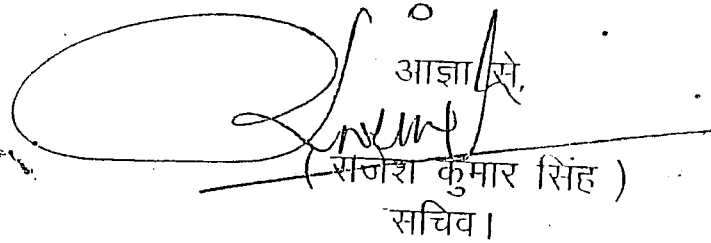 आज्ञा से,
( राजेश कुमार सिंह )
सचिव।